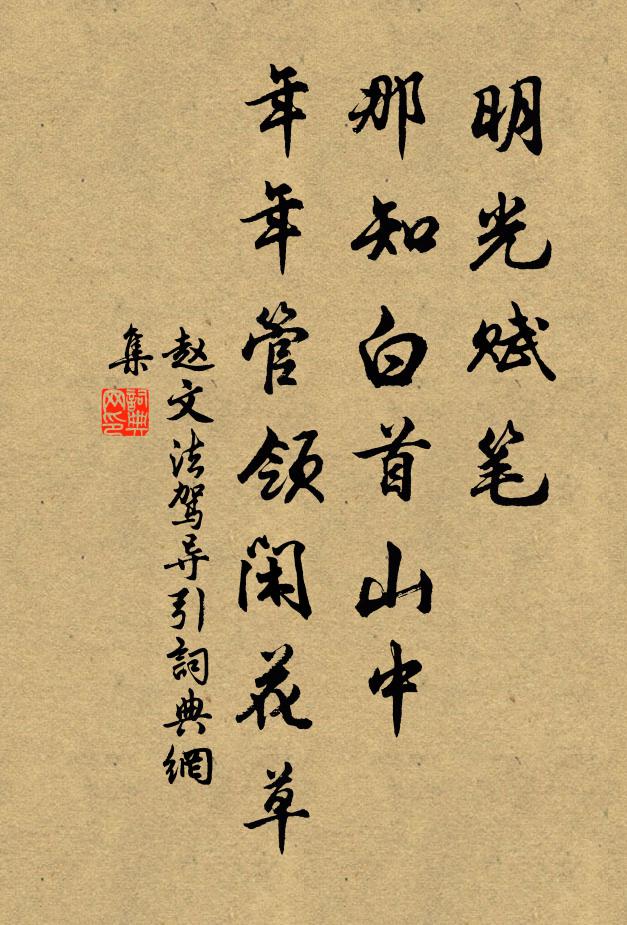 明光赋笔
那知白首山中
年年管领闲花草
赵文法驾导引詞典網
集
詞典网印